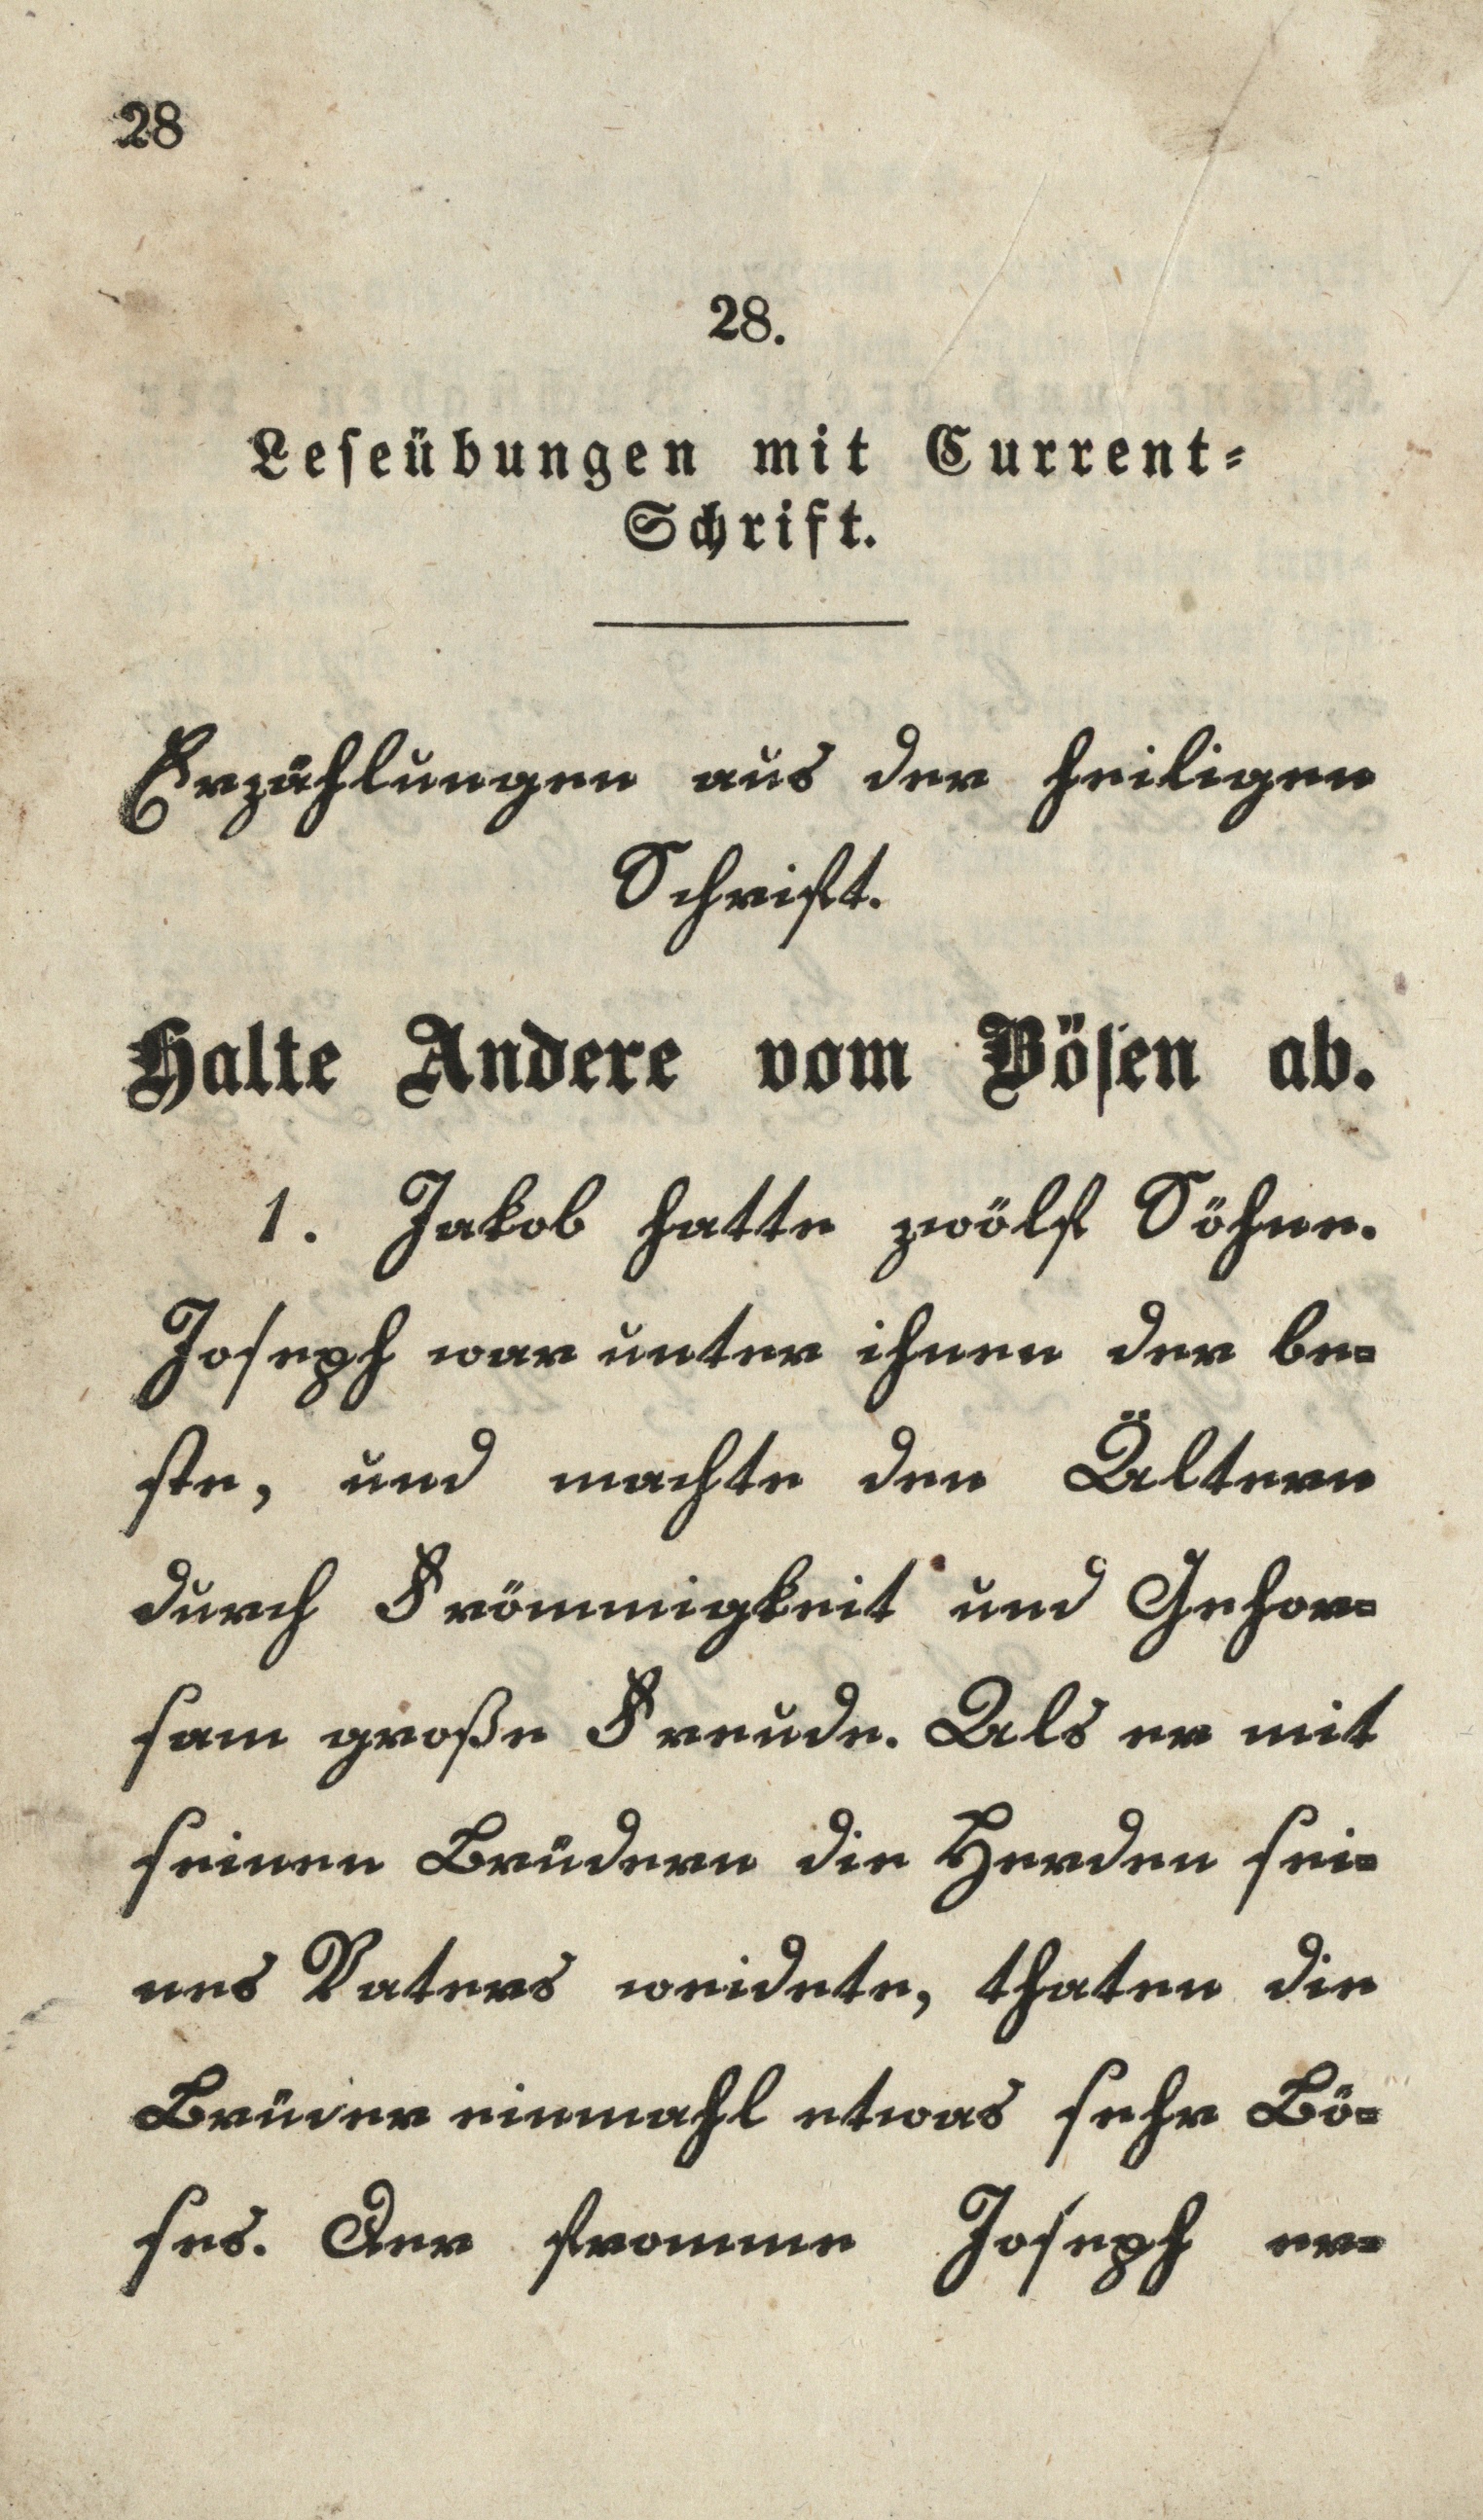 28
28.
Leseübungen mit Current-
Schrift.
Erzählungen aus der heiligen
Schrift.
Halte Andere vom Bösen ab.
1. Jakob hatte zwölf Söhne.
Joseph war unter ihnen der be-
ste, und machte den Ältern
durch Frömmigkeit und Gehor-
sam große Freude. Als er mit
seinen Brüdern die Herden sei-
nes Vaters weidete, thaten die
Brüder einmahl etwas sehr Bö-
ses. Der fromme Joseph er-